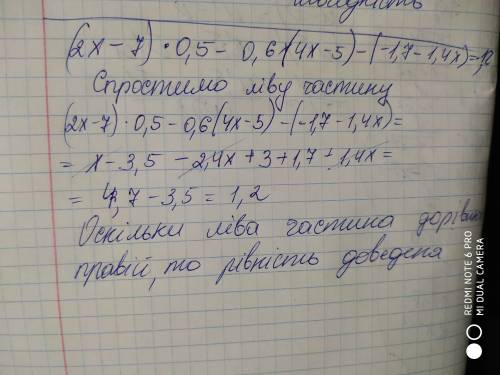 (2x-7)·0,5-0,6(4x-5)-(-1,7-1,4x)=1,2
Спростимо ліву частину
(2x-7)·0,5-0,6(4x-5)-(-1,7-1,4x)=
= x-3,5-2,4x+3+1,7+1,4x=
= 4,7-3,5=1,2
Оскільки ліва частина дорівнює
правій, то рівність доведена
REDMI NOTE 6 PRO
MI DUAL CAMERA